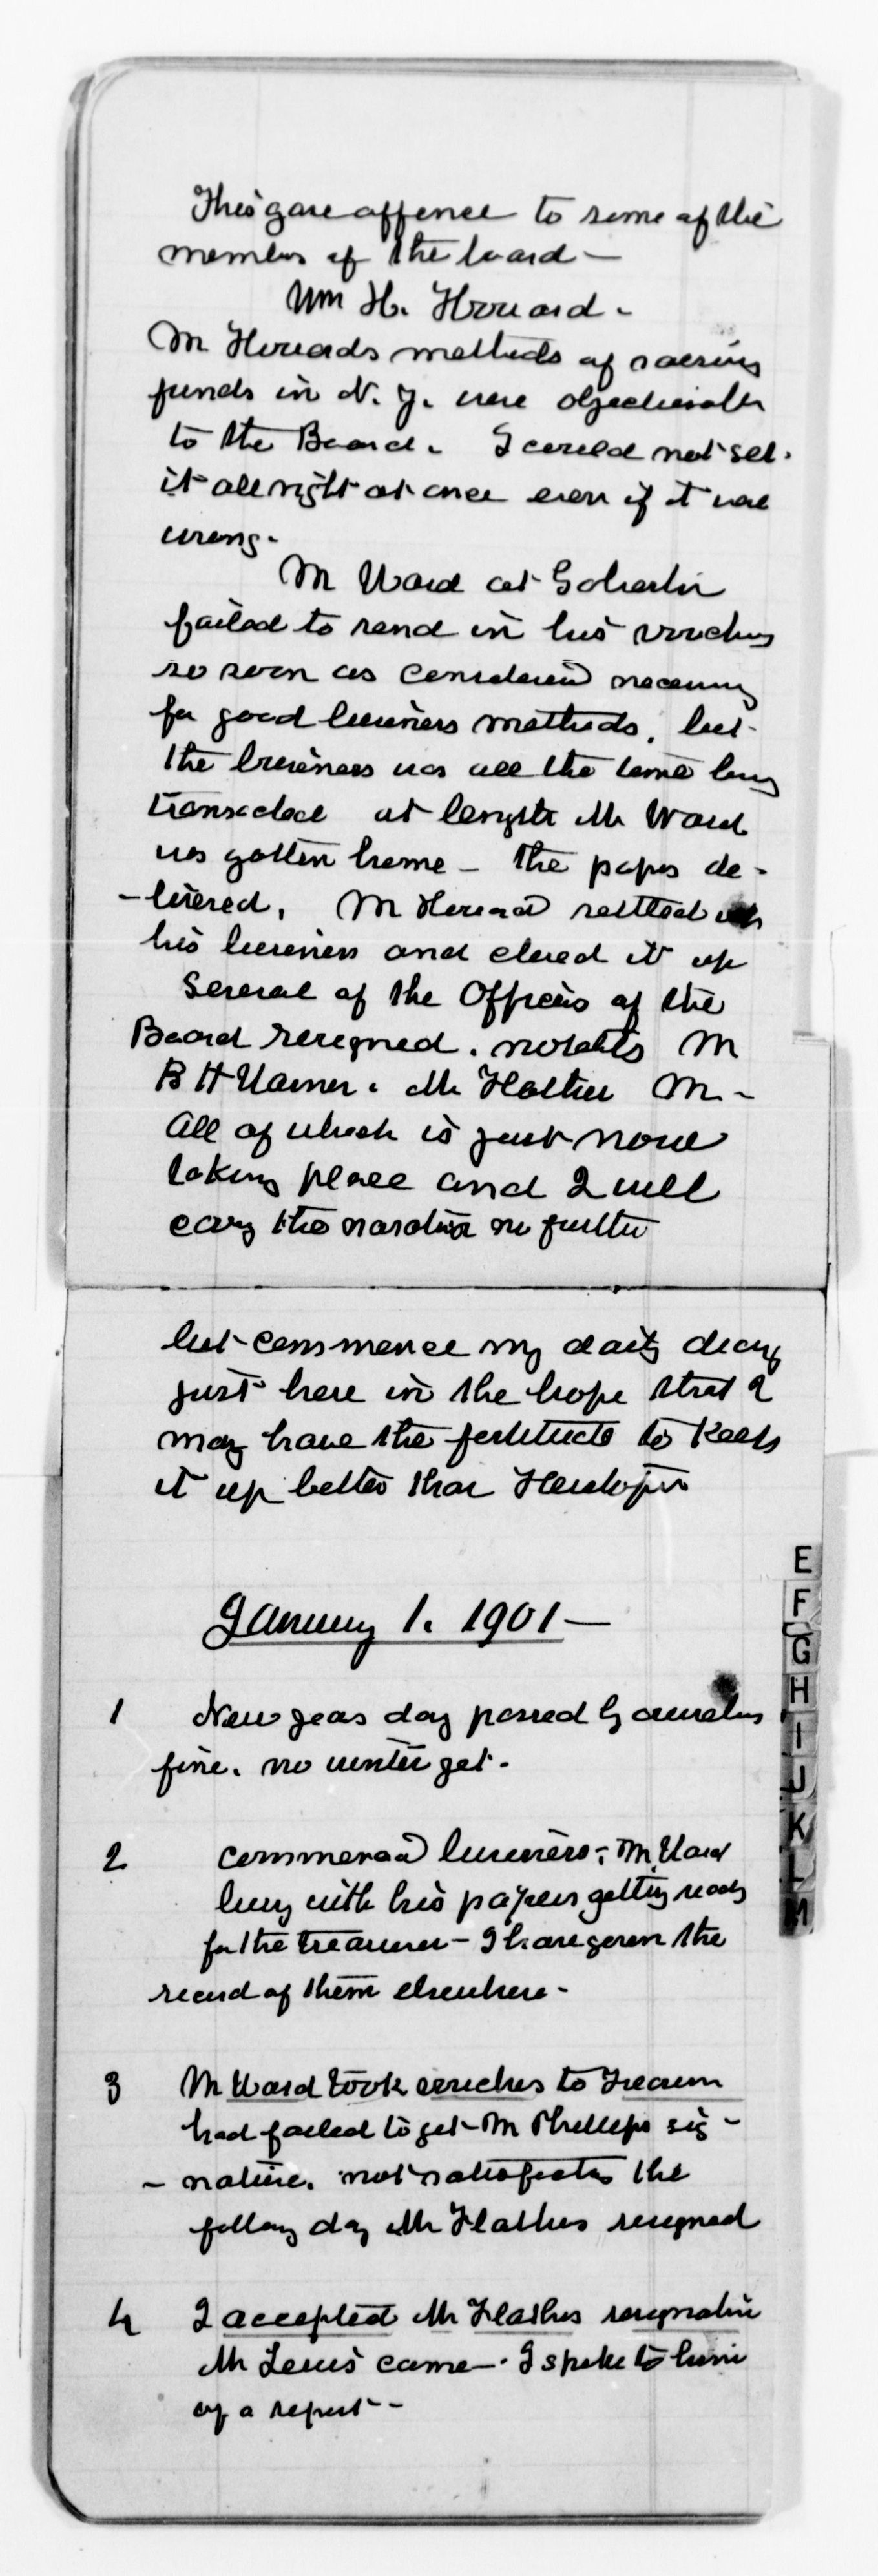 This gave offence to some of the
members of the board —
Wm H. Howard.
Mr Howards methods of raising
funds in N. Y. were objectionable
to the Board. I could not set
it all right at once even if it was
wrong.
Mr Ward at Galveston
failed to send in his vouchers
so soon as considered necessary
for good business methods, but
the business was all the time being
transacted at length Mr Ward
was gotten home — the papers de-
-livered. Mr Howard settled up
his business and closed it up
Several of the Officers of the
Board resigned. notably Mr
B H Warner. Mr Flather Mr —
All of which is just now
taking place and I will
cary the narative no further
but commence my daily diary
just here in the hope that I
may have the fortitude to keep
it up better than Heretofore
January 1. 1901 —
1 New years day passed by ourselves
fine. no winter yet.
2 Commenced business; Mr. Ward
busy with his papers getting ready
for the treasurer — I have given the
record of them elsewhere —
3 Mr Ward took vouches to Treasurer
had failed to get Mr Phillips sig-
- nature. not satisfactory the
following day Mr Flather resigned
4 I accepted Mr Flathers resignation
Mr Lewis came. I spoke to him
of a report —
E
F
G
H
I
J
K
L
M